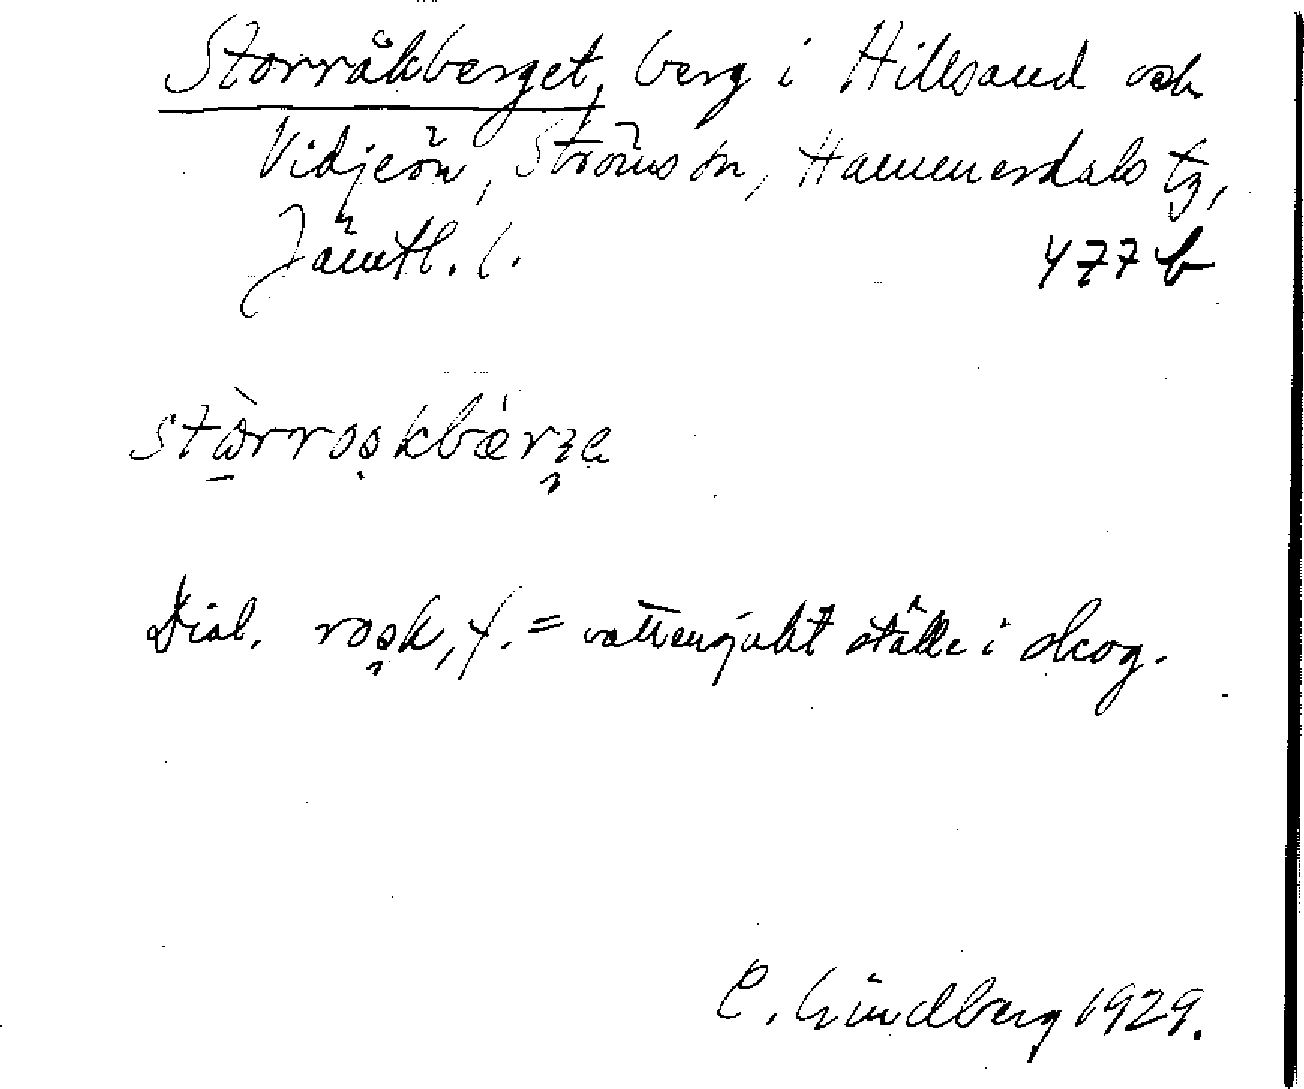 Storråkberget, berg i Hillsand och
Vidjeön, Ströms sn, Hammerdals tg,
Jämtl. l.
477 b
Dial. rosk, f. = vattensjukt ställe i skog.
C. Lindberg 1929.